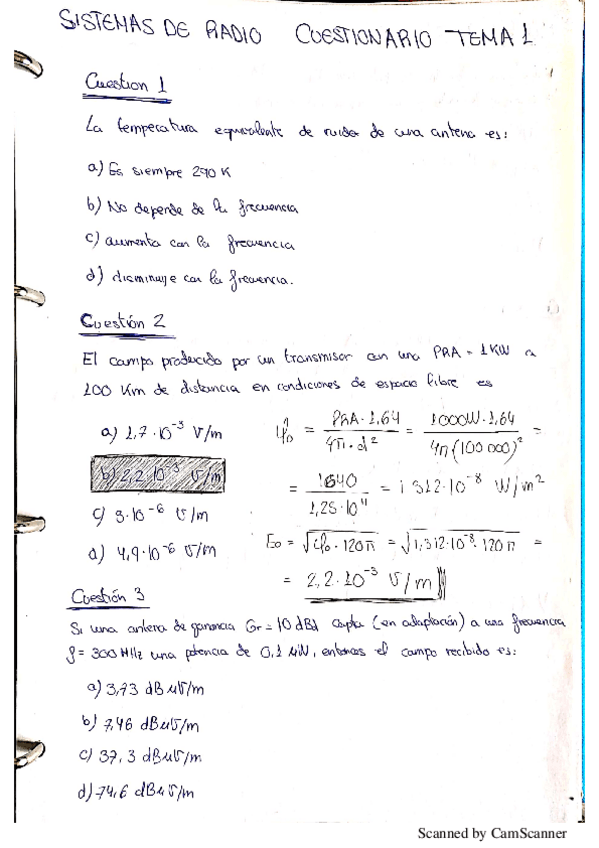 SISTEMAS DE RADIO CUESTIONARIO TEMA 1
Cuestion 1
La temperatura equivalente de ruido de una antena es:
a) Es siempre 290 K
b) No depende de la frecuencia
c) aumenta con la frecuencia
d) disminuye con la frecuencia.
Cuestión 2
El campo producido por un transmisor con una PRA = 1KW a
100 Km de distancia en condiciones de espacio libre es
a) 1,7·10⁻³ V/m
b) 2,2·10⁻³ V/m
c) 3·10⁻⁶ V/m
d) 4,9·10⁻⁶ V/m
φ₀ = PRA·1,64 / 4π·d² = 1000W·1,64 / 4π(100 000)² =
= 1640 / 1,25·10¹¹ = 1 312·10⁻⁸ W/m²
E₀ = √φ₀·120π = √1,312·10⁻⁸·120π =
= 2,2·10⁻³ V/m
Cuestión 3
Si una antena de ganancia Gr = 10 dBd capta (en adaptación) a una frecuencia
f = 300 MHz una potencia de 0,1 μW, entonces el campo recibido es:
a) 3,73 dBuV/m
b) 7,46 dBuV/m
c) 37,3 dBuV/m
d) 74,6 dBuV/m
Scanned by CamScanner